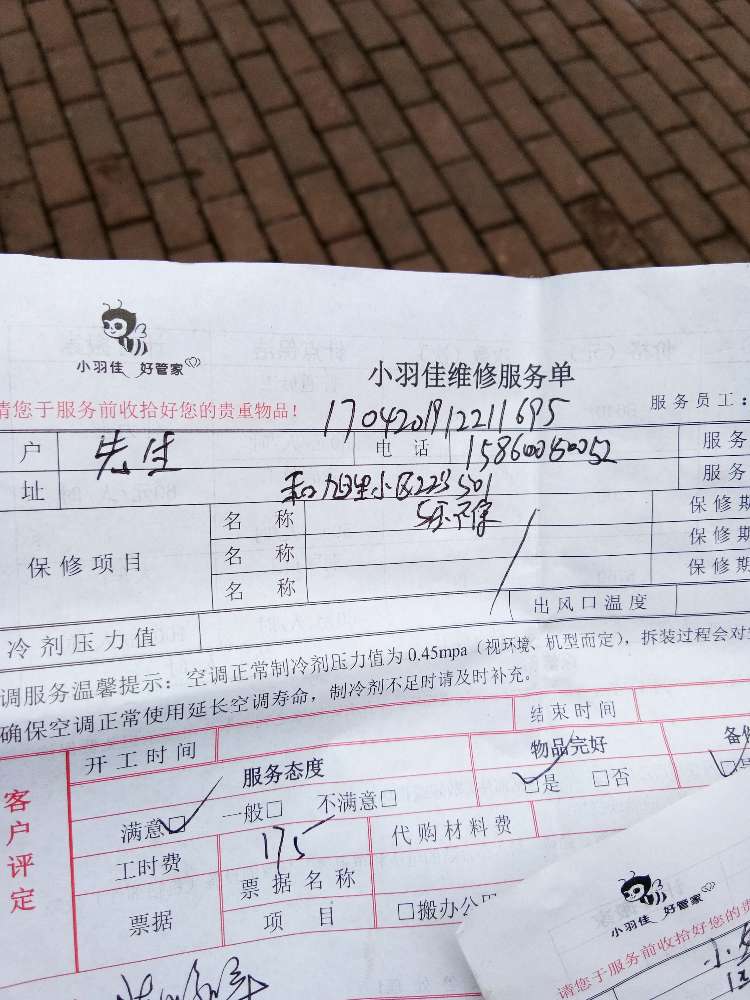 小羽佳 好管家
小羽佳维修服务单
请您于服务前收拾好您的贵重物品!
服务员工:
1704201912211695
户 先生 电话 15860050052 服务
址 和旭里小区223 501 服务
保修项目
名称 保修期
名称 保修期
名称 保修期
冷剂压力值 出风口温度
调服务温馨提示:空调正常制冷剂压力值为0.45mpa(视环境、机型而定),拆装过程会对
确保空调正常使用延长空调寿命,制冷剂不足时请及时补充。
开工时间 结束时间
客户评定
服务态度 物品完好
满意□ 一般□ 不满意□ □是 □否
工时费 175 代购材料费
票据 票据名称
项目 □搬办公
小羽佳 好管家
请您于服务前收拾好您的贵